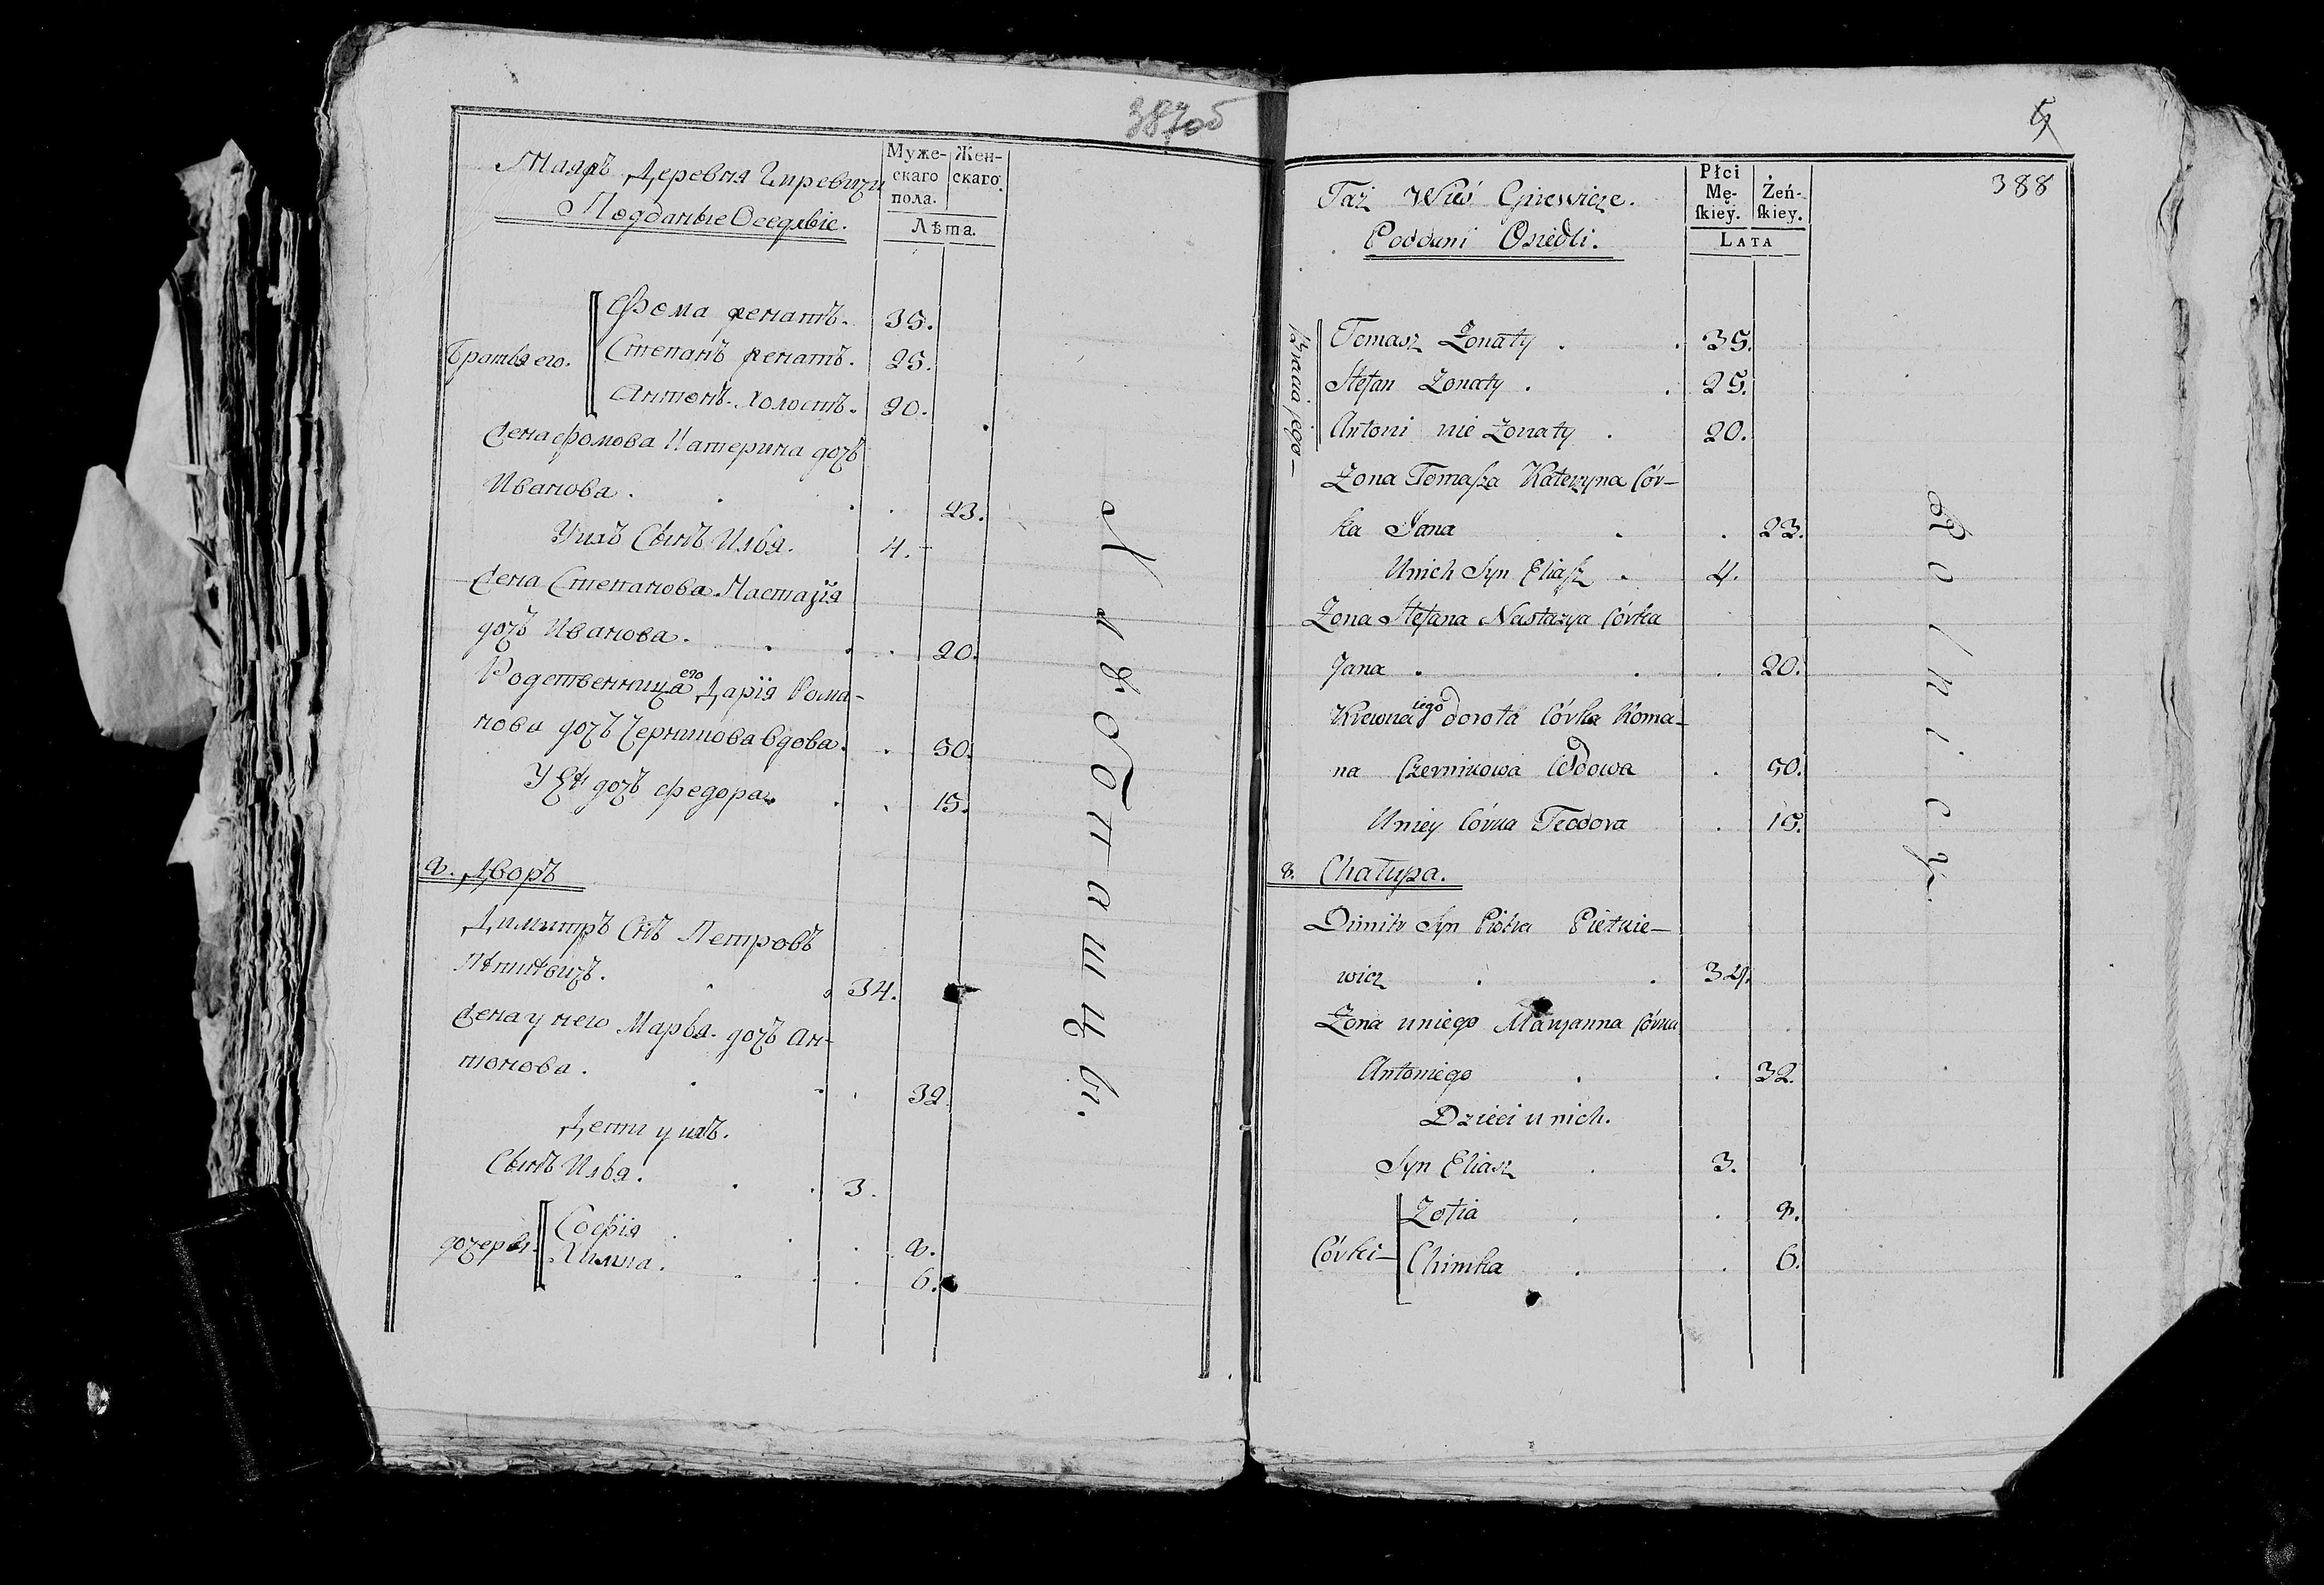 387об
Таяжъ Деревня Гиревичи
Подданые Оседлые.
Муже-
скаго
пола.
Жен-
скаго.
Лѣта.
Братья его.
Фома женатъ. 35.
Степанъ женатъ. 25.
Антонъ Холостъ. 20.
Жена Фомова Катерина дочь
Иванова. 23.
У нихъ Сынъ Илья. 4.
Жена Степанова Настазія
дочь Иванова. 20.
Родственница его Дарія Рома-
нова дочь Вдова. 50.
У Ей дочь Федора. 15.
8. Дворъ
Димитръ Снъ Петровъ
34.
Жена у него Марья дочь Ан-
тонова. 32
Дети у нихъ.
Сынъ Илья. 3.
дочери
Софія 8.
Химка. 6.
Хлѣбопашцы.
5
388
Taż Wieś Giriewicze.
Poddani Osiedli.
Płci
Mę-
skiey.
Żeń-
skiey.
Lata
Bracia jego—
Tomasz Żonaty 35.
Stefan Żonaty 25.
Antoni nie Żonaty 20.
Żona Tomasza Katerzyna Cór-
ka Jana 23.
Unich Syn Eliasz 4.
Żona Stefana Nastazya Córka
Jana 20.
Krewna iego dorota Córka Roma-
na Czernikowa Wdowa 50.
Uniey Córka Teodora 15.
8. Chałupa.
Dimitr Syn Piotra Pietkie-
wicz 34.
Żona uniego Maryanna Córka
Antoniego 32.
Dzieci u nich.
Syn Eliasz 3.
Córki—
Zofia 8.
Chimka 6.
Rolnicy.